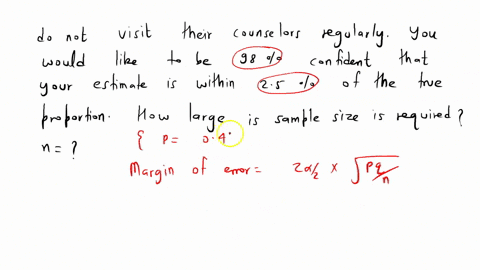 do not visit their counselors regularly. You
would like to be 98 % confident that
your estimate is within 2.5 % of the true
proportion. How large is sample size is required?
n = ? { p = 0.4
Margin of error = zα/2 × √pq/n